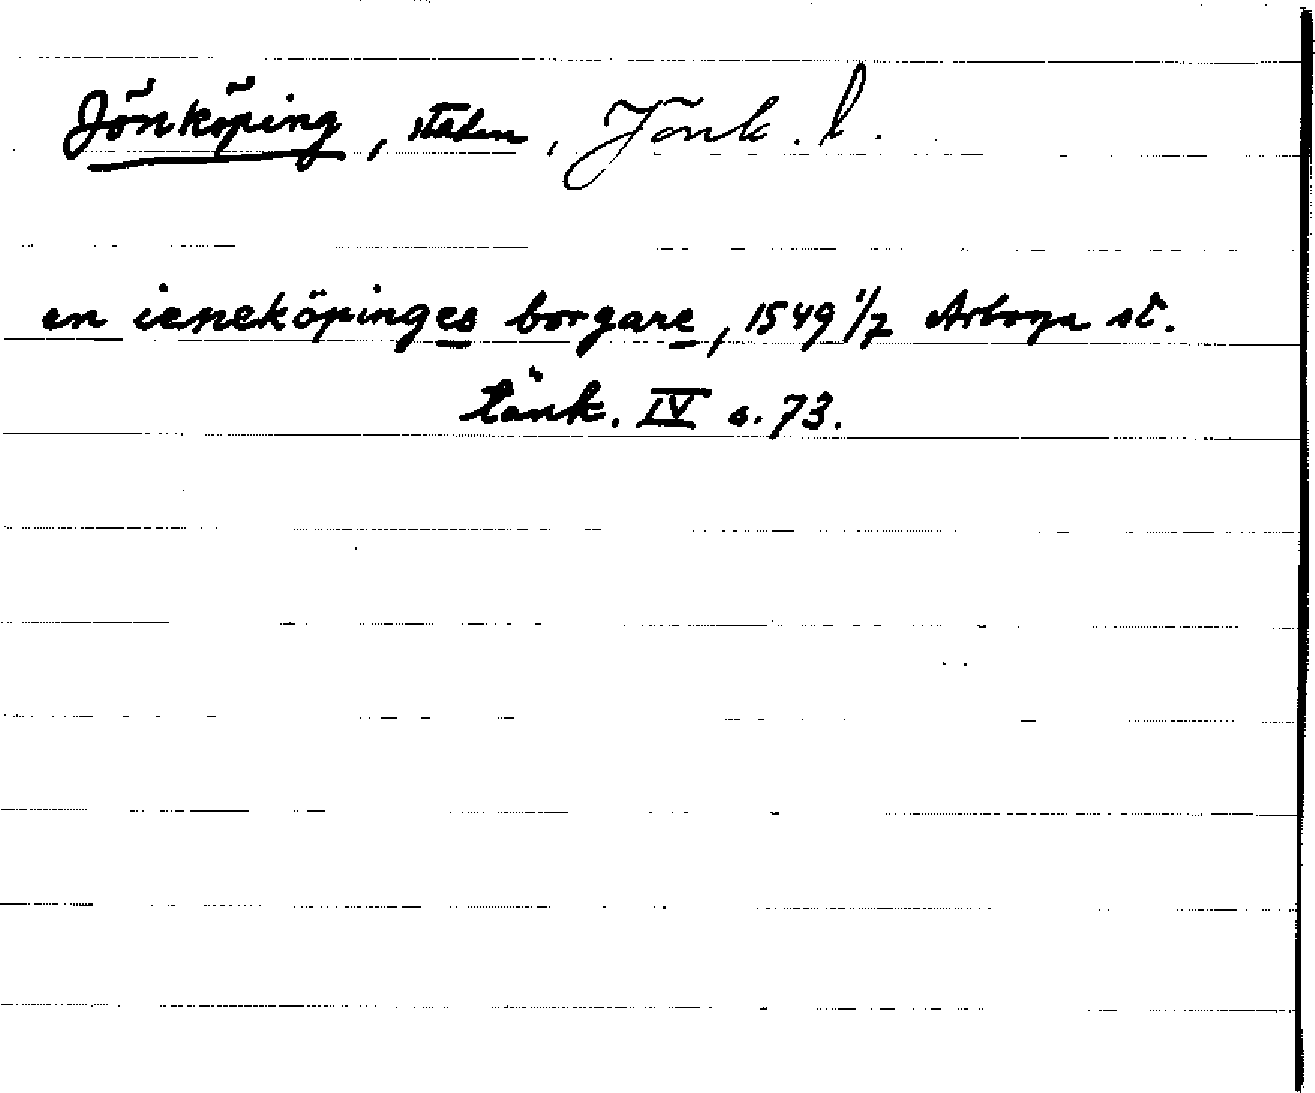 Jönköping, staden, Jönk. l.
en ieneköpinges borgare, 1549 1/7 Arboga st.
tänk. IV s. 73.